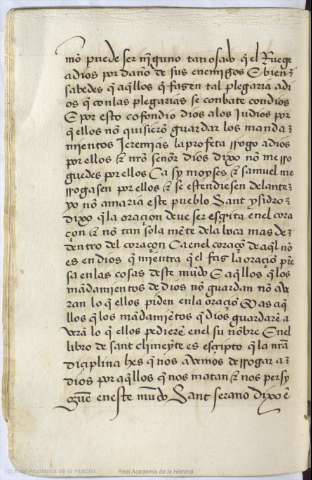 mo puede ser nīguno tan osado q̄ el Ruege
a dios por daño de sus enemigos E bien
sabedes q̄ aq̄llos q̄ fazen tal plegaria a di
os q̄ con las plegarias se conbate con dios
E por esto cofondio dios a los Judios por
q̄ ellos nō quisierō guardar los manda
mientos Jeremias la profeta rrogo a dios
por ellos & nrō señor dios dixo nō me rro
guedes por ellos Ca sy moyses & samuel me
rrogasen por ellos & se estendiesen delante
yo nō amaria este pueblo Sant ysidro
dixo q̄ la oracion deue ser esc̃pita en el cora
çon & nō tan sola mēte de la boca mas de
dentro del coraçon Ca en el coraçō de aq̄l nō
es en dios q̄ mientra q̄ el faz la oraçiō piē
sa en las cosas deste mūdo E aq̄llos q̄ los
mādamientos de dios nō guardan nō av
ran lo q̄ ellos piden en la oraçiō Mas aq̄
llos q̄ los mādamiētos q̄ dios guardarē a
verā lo q̄ ellos pedierē en el su nōbre En el
libro de sant climeyte es escripto q̄ la nrā
diciplina hes q̄ nos avemos de rrogar a
dios por aq̄llos q̄ nos matan & nos persy
guē en este mūdo Sant serano dixo ē
Real Academia de la Historia